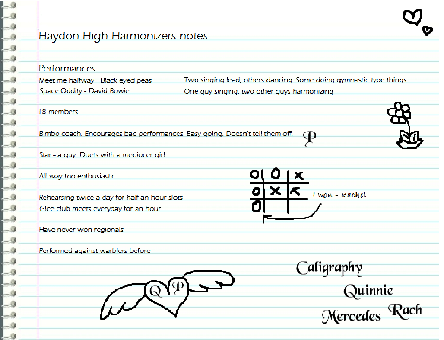 Haydon High Harmonizers notes
Performances
Meet me halfway - Black eyed peas Two singing lead, others dancing. Some doing gymnastic type things
Space Oddity - David Bowie One guy singing, two other guys harmonizing
18 members
Bimbo coach. Encourages bad performances. Easy going. Doesn't tell them off
P
Stars a guy. Duets with a mediocre girl
All way too enthusiastic
O O X
O X X
O
I won -
Rehearsing twice a day for half an hour slots
Glee club meets everyday for an hour
Have never won regionals
Performed against warblers before
Q P
Caligraphy
Quinnie
Mercedes Rach